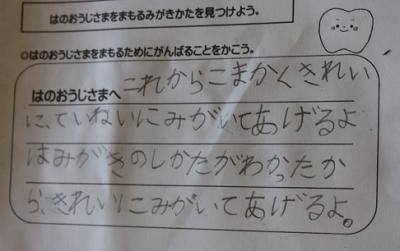 はのおうじさまをまもるみがきかたを見つけよう。
◎はのおうじさまをまもるためにがんばることをかこう。
はのおうじさまへ これからこまかくきれい
に、ていねいにみがいてあげるよ
はみがきのしかたがわかったか
ら、きれいにこみがいてあげるよ。